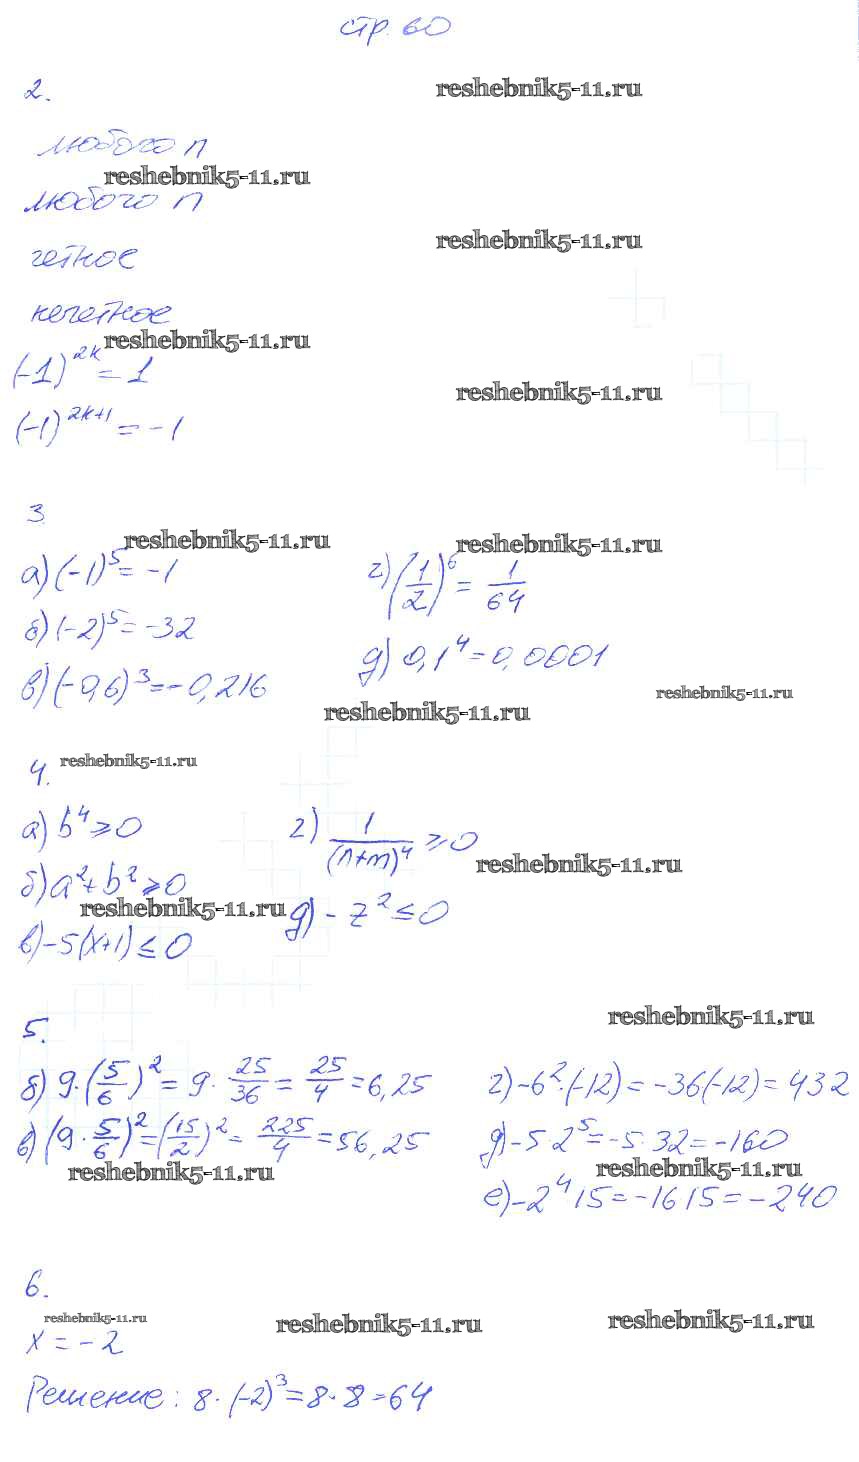 стр. 60
2.
reshebnik5-11.ru
любого n
reshebnik5-11.ru
любого n
reshebnik5-11.ru
четное
нечетное
reshebnik5-11.ru
(-1)^2k = 1
reshebnik5-11.ru
(-1)^2k+1 = -1
3
reshebnik5-11.ru
reshebnik5-11.ru
а) (-1)^5 = -1
г) (1/2)^6 = 1/64
б) (-2)^5 = -32
д) 0,1^4 = 0,0001
в) (-0,6)^3 = -0,216
reshebnik5-11.ru
reshebnik5-11.ru
4.
reshebnik5-11.ru
а) b^4 ≥ 0
г) 1/(n+m)^4 ≥ 0
reshebnik5-11.ru
б) a^2 + b^2 ≥ 0
reshebnik5-11.ru
д) - z^2 ≤ 0
в) -5(x+1) ≤ 0
reshebnik5-11.ru
5.
б) 9·(5/6)^2 = 9 · 25/36 = 25/4 = 6,25
г) -6^2·(-12) = -36(-12) = 432
в) (9·5/6)^2 = (15/2)^2 = 225/4 = 56,25
д) -5·2^5 = -5·32 = -160
reshebnik5-11.ru
reshebnik5-11.ru
е) -2^4 15 = -16 15 = -240
6.
reshebnik5-11.ru
reshebnik5-11.ru
reshebnik5-11.ru
x = -2
Решение: 8·(-2)^3 = 8·8 = 64